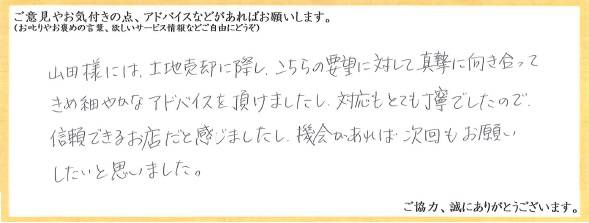 ご意見やお気付きの点、アドバイスなどがあればお願いします。
(お叱りやお褒めの言葉、欲しいサービス情報などご自由にどうぞ)
山田様には、土地売却に際し、こちらの要望に対して真摯に向き合って
きめ細やかなアドバイスを頂けましたし、対応もとても丁寧でしたので、
信頼できるお店だと感じましたし、機会があれば次回もお願い
したいと思いました。
ご協力、誠にありがとうございます。